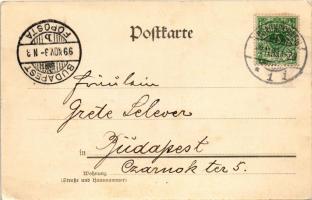 Postkarte
BUDAPEST
99 NOV. 3 - N 3
FŐPOSTA
Fräulein
Grete Selever
in Budapest
Czarnok ter 5.
Wohnung
(Straße und Hausnummer)